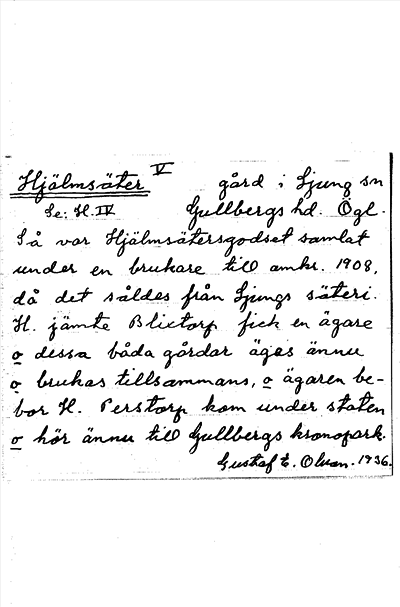 Hjälmsäter V gård i Ljung sn
Se: H. IV Gullbergs hd. Ögl.
Så var Hjälmsätersgodset samlat
under en brukare till omkr. 1908,
då det såldes från Ljungs säteri.
H. jämte Blictorp fick en ägare
o dessa båda gårdar äges ännu
o brukas tillsammans, o ägaren be-
bor H. Perstorp kom under staten
o hör ännu till Gullbergs kronopark.
Gustaf E. Olsson. 1936.